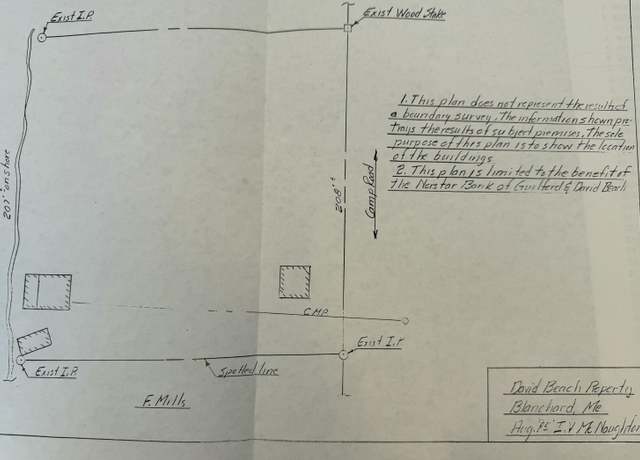 Exist I.P.
Exist Wood Stake
1. This plan does not represent the result of
a boundary survey. The information shown pre-
trays the results of subject premises. The sole
purpose of this plan is to show the location
of the buildings
2. This plan is limited to the benefit of
the Norstar Bank of Guilferd & David Beach
207'± on shore
208'±
Camp Road
C.M.P.
Exist I.P.
Exist I.P.
Spotted line
F. Mills
David Beach Peperty
Blanchard, Me
Aug. '85' I.V McNaughton